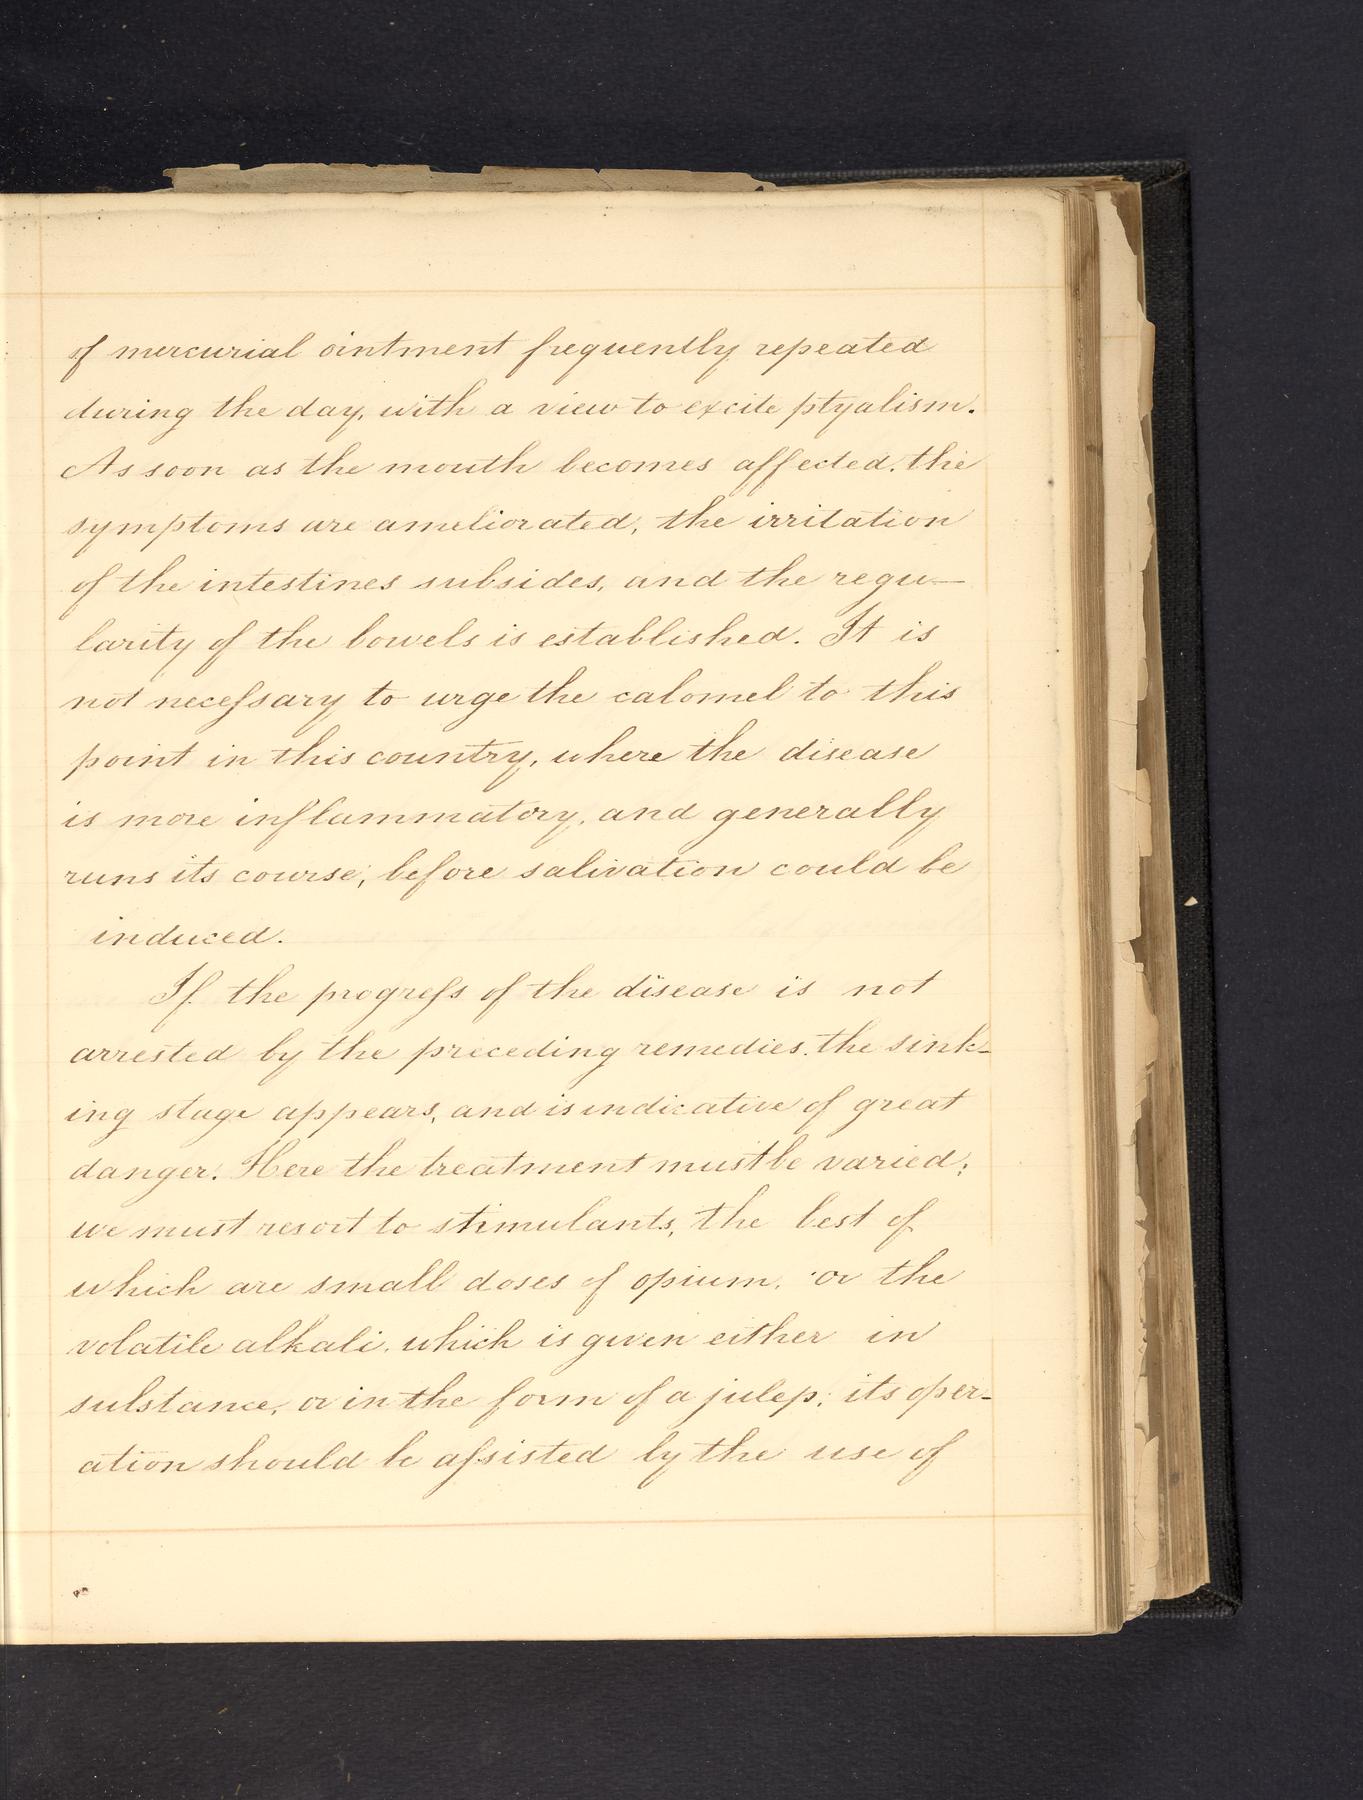 of mercurial ointment frequently repeated
during the day, with a view to excite ptyalism.
As soon as the mouth becomes affected, the
symptoms are ameliorated, the irritation
of the intestines subsides, and the regu-
larity of the bowels is established. It is
not necessary to urge the calomel to this
point in this country, where the disease
is more inflammatory, and generally
runs its course, before salivation could be
induced.
If the progress of the disease is not
arrested by the preceding remedies, the sink-
ing stage appears, and is indicative of great
danger. Here the treatment must be varied;
we must resort to stimulants, the best of
which are small doses of opium, or the
volatile alkali, which is given either in
substance, or in the form of a julep; its oper-
ation should be assisted by the use of